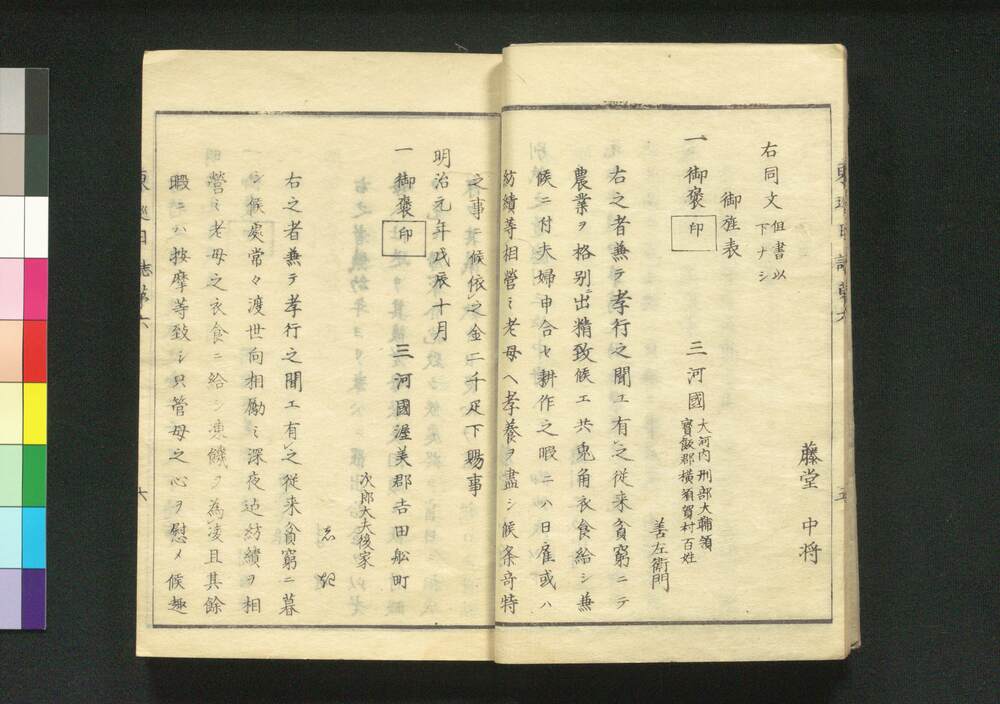 藤堂 中将
右同文 但書以
下ナシ
御旌表
一 御褒 印 三河國 大河内刑部大輔領
寶飯郡横須賀村百姓
善左衛門
右之者兼テ孝行之聞エ有之従来貧窮ニテ
農業ヲ格別ニ出精致候エ共兎角衣食給シ兼
候ニ付夫婦申合セ耕作之暇ニハ日雇或ハ
紡績等相營ミ老母ヘ孝養ヲ盡シ候条奇特
之事ニ候依之金二千疋下賜事
明治元年戊辰十月
一 御褒 印 三河國渥美郡吉田舩町
次郎大夫後家
右之者兼テ孝行之聞エ有之従来貧窮ニ暮
シ候處常々渡世向相勵ミ深夜迠紡績ヲ相
營ミ老母之衣食ニ給シ凍饑ヲ為凌且其餘
暇ニハ按摩等致シ只管母之心ヲ慰メ候趣
東巡日誌第六
六